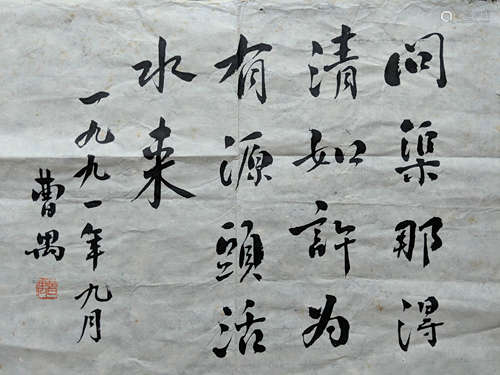 问渠那得
清如許为
有源頭活
水来
一九九一年九月
曹禺